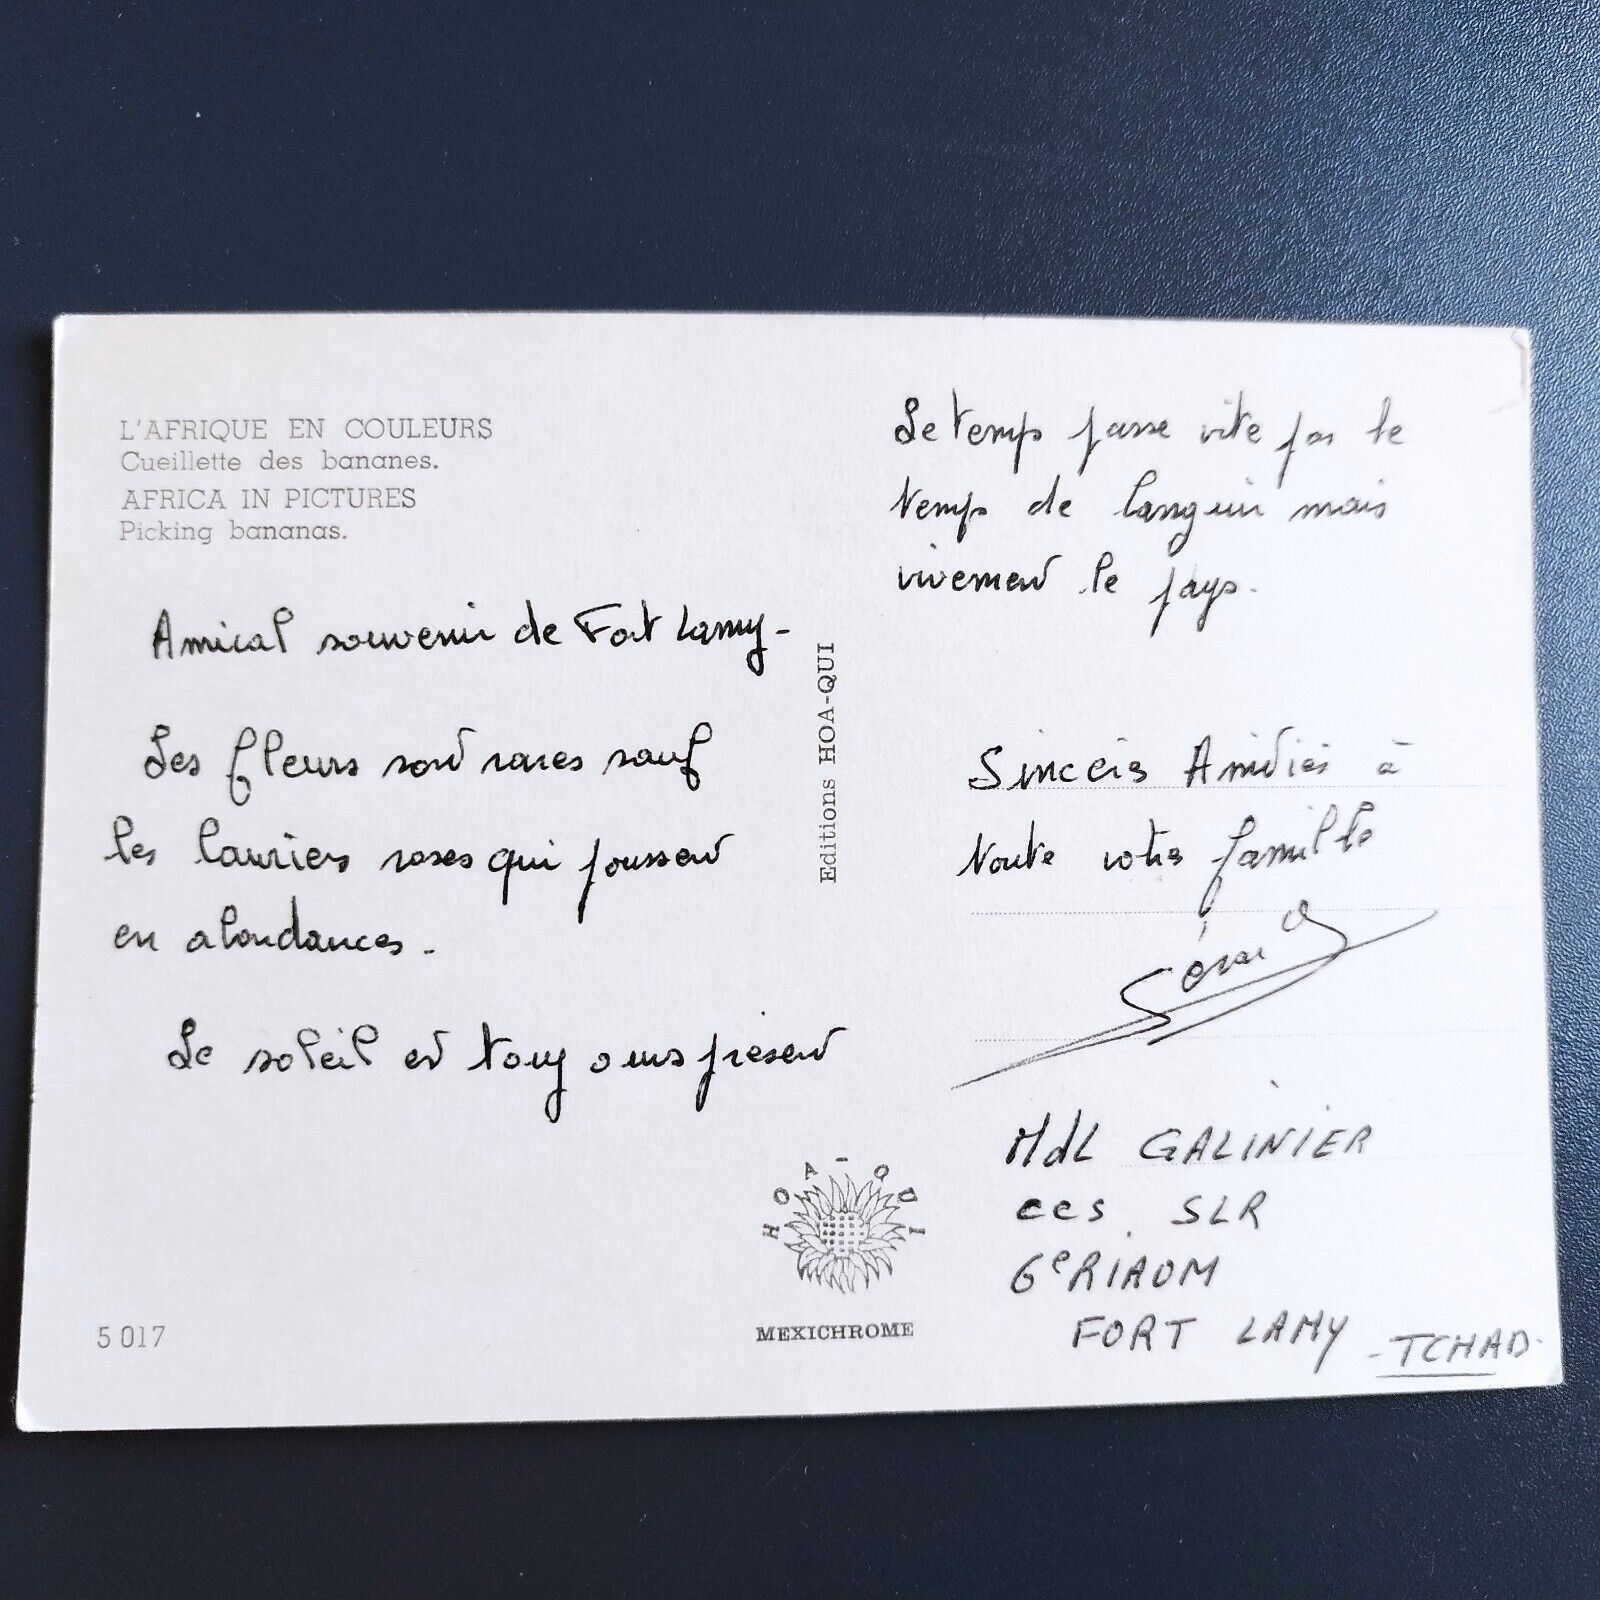 L'AFRIQUE EN COULEURS
Cueillette des bananes.
AFRICA IN PICTURES
Picking bananas.
Amical souvenir de Fort Lamy-
Les fleurs sont rares sauf
les lauriers roses qui poussent
en abondances.
Le soleil est toujours présent
5 017
Editions HOA-QUI
HOA-QUI
MEXICHROME
Le temps passe vite pas le
temps de languir mais
vivement le pays.
Sincères Amitiés à
toute votre famille
Gérard
MdL GALINIER
CCS. SLR
6e RIAOM
FORT LAMY - TCHAD-